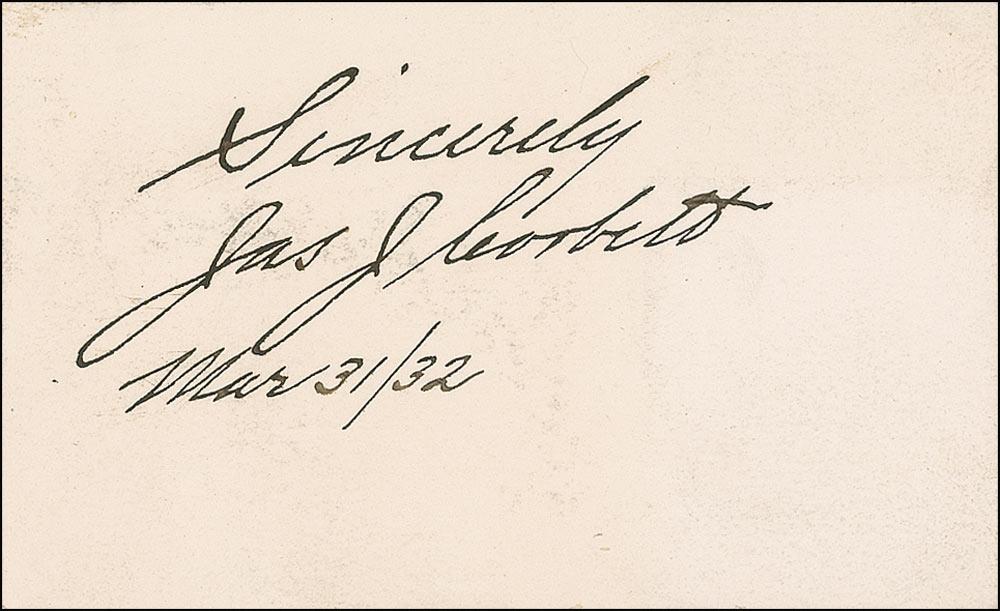 Sincerely
Jas J Corbett
Mar 31/32